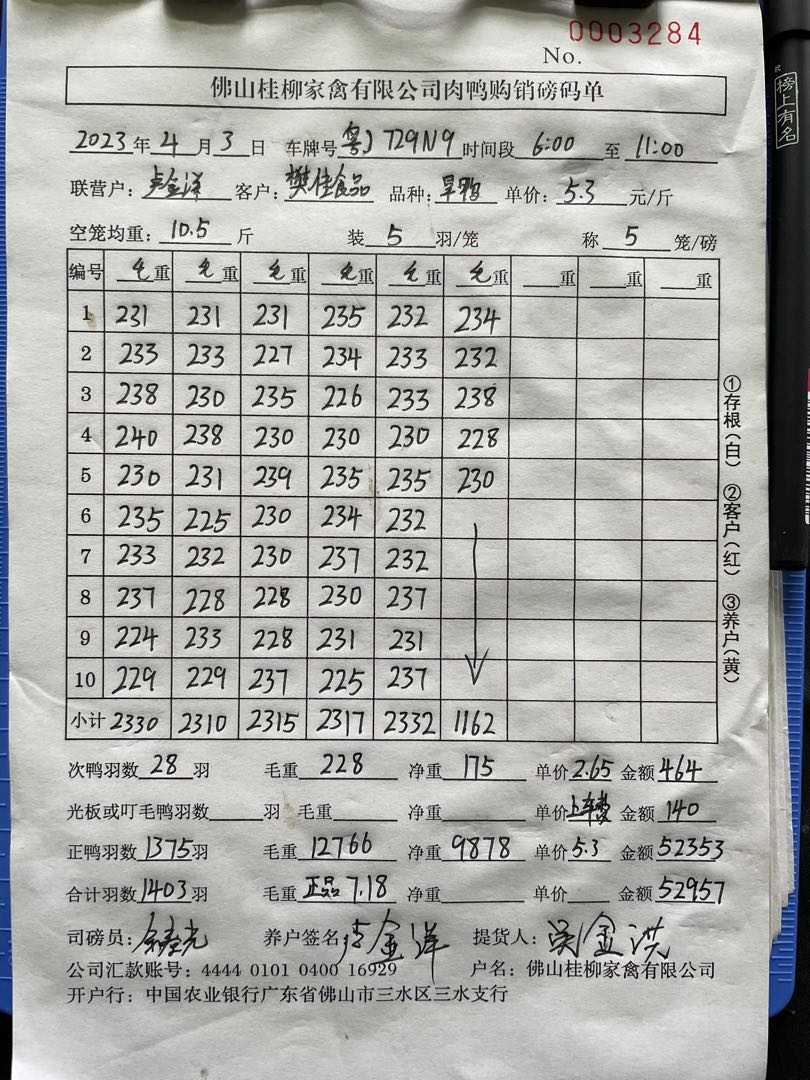 0003284
No.
佛山桂柳家禽有限公司肉鸭购销磅码单
2023年4月3日 车牌号粤J729N9时间段6:00至11:00
联营户：卢金洋 客户：樊佳食品 品种：旱鸭 单价：5.3元/斤
空笼均重：10.5斤 装5羽/笼 称5笼/磅
编号 毛重 毛重 毛重 毛重 毛重 毛重 重 重 重
1 231 231 231 235 232 234
2 233 233 227 234 233 232
3 238 230 235 226 233 238
4 240 238 230 230 230 228
5 230 231 239 235 235 230
6 235 225 230 234 232
7 233 232 230 237 232
8 237 228 228 230 237
9 224 233 228 231 231
10 229 229 237 225 237
小计 2330 2310 2315 2317 2332 1162
次鸭羽数28羽 毛重228 净重175 单价2.65 金额464
光板或叮毛鸭羽数 羽 毛重 净重 单价上车费 金额140
正鸭羽数1375羽 毛重12766 净重9878 单价5.3 金额52353
合计羽数1403羽 毛重正品7.18 净重 单价 金额52957
司磅员： 养户签名：卢金洋 提货人：吴金洪
公司汇款账号：4444 0101 0400 16929 户名：佛山桂柳家禽有限公司
开户行：中国农业银行广东省佛山市三水区三水支行
①存根（白） ②客户（红） ③养户（黄）
榜上有名